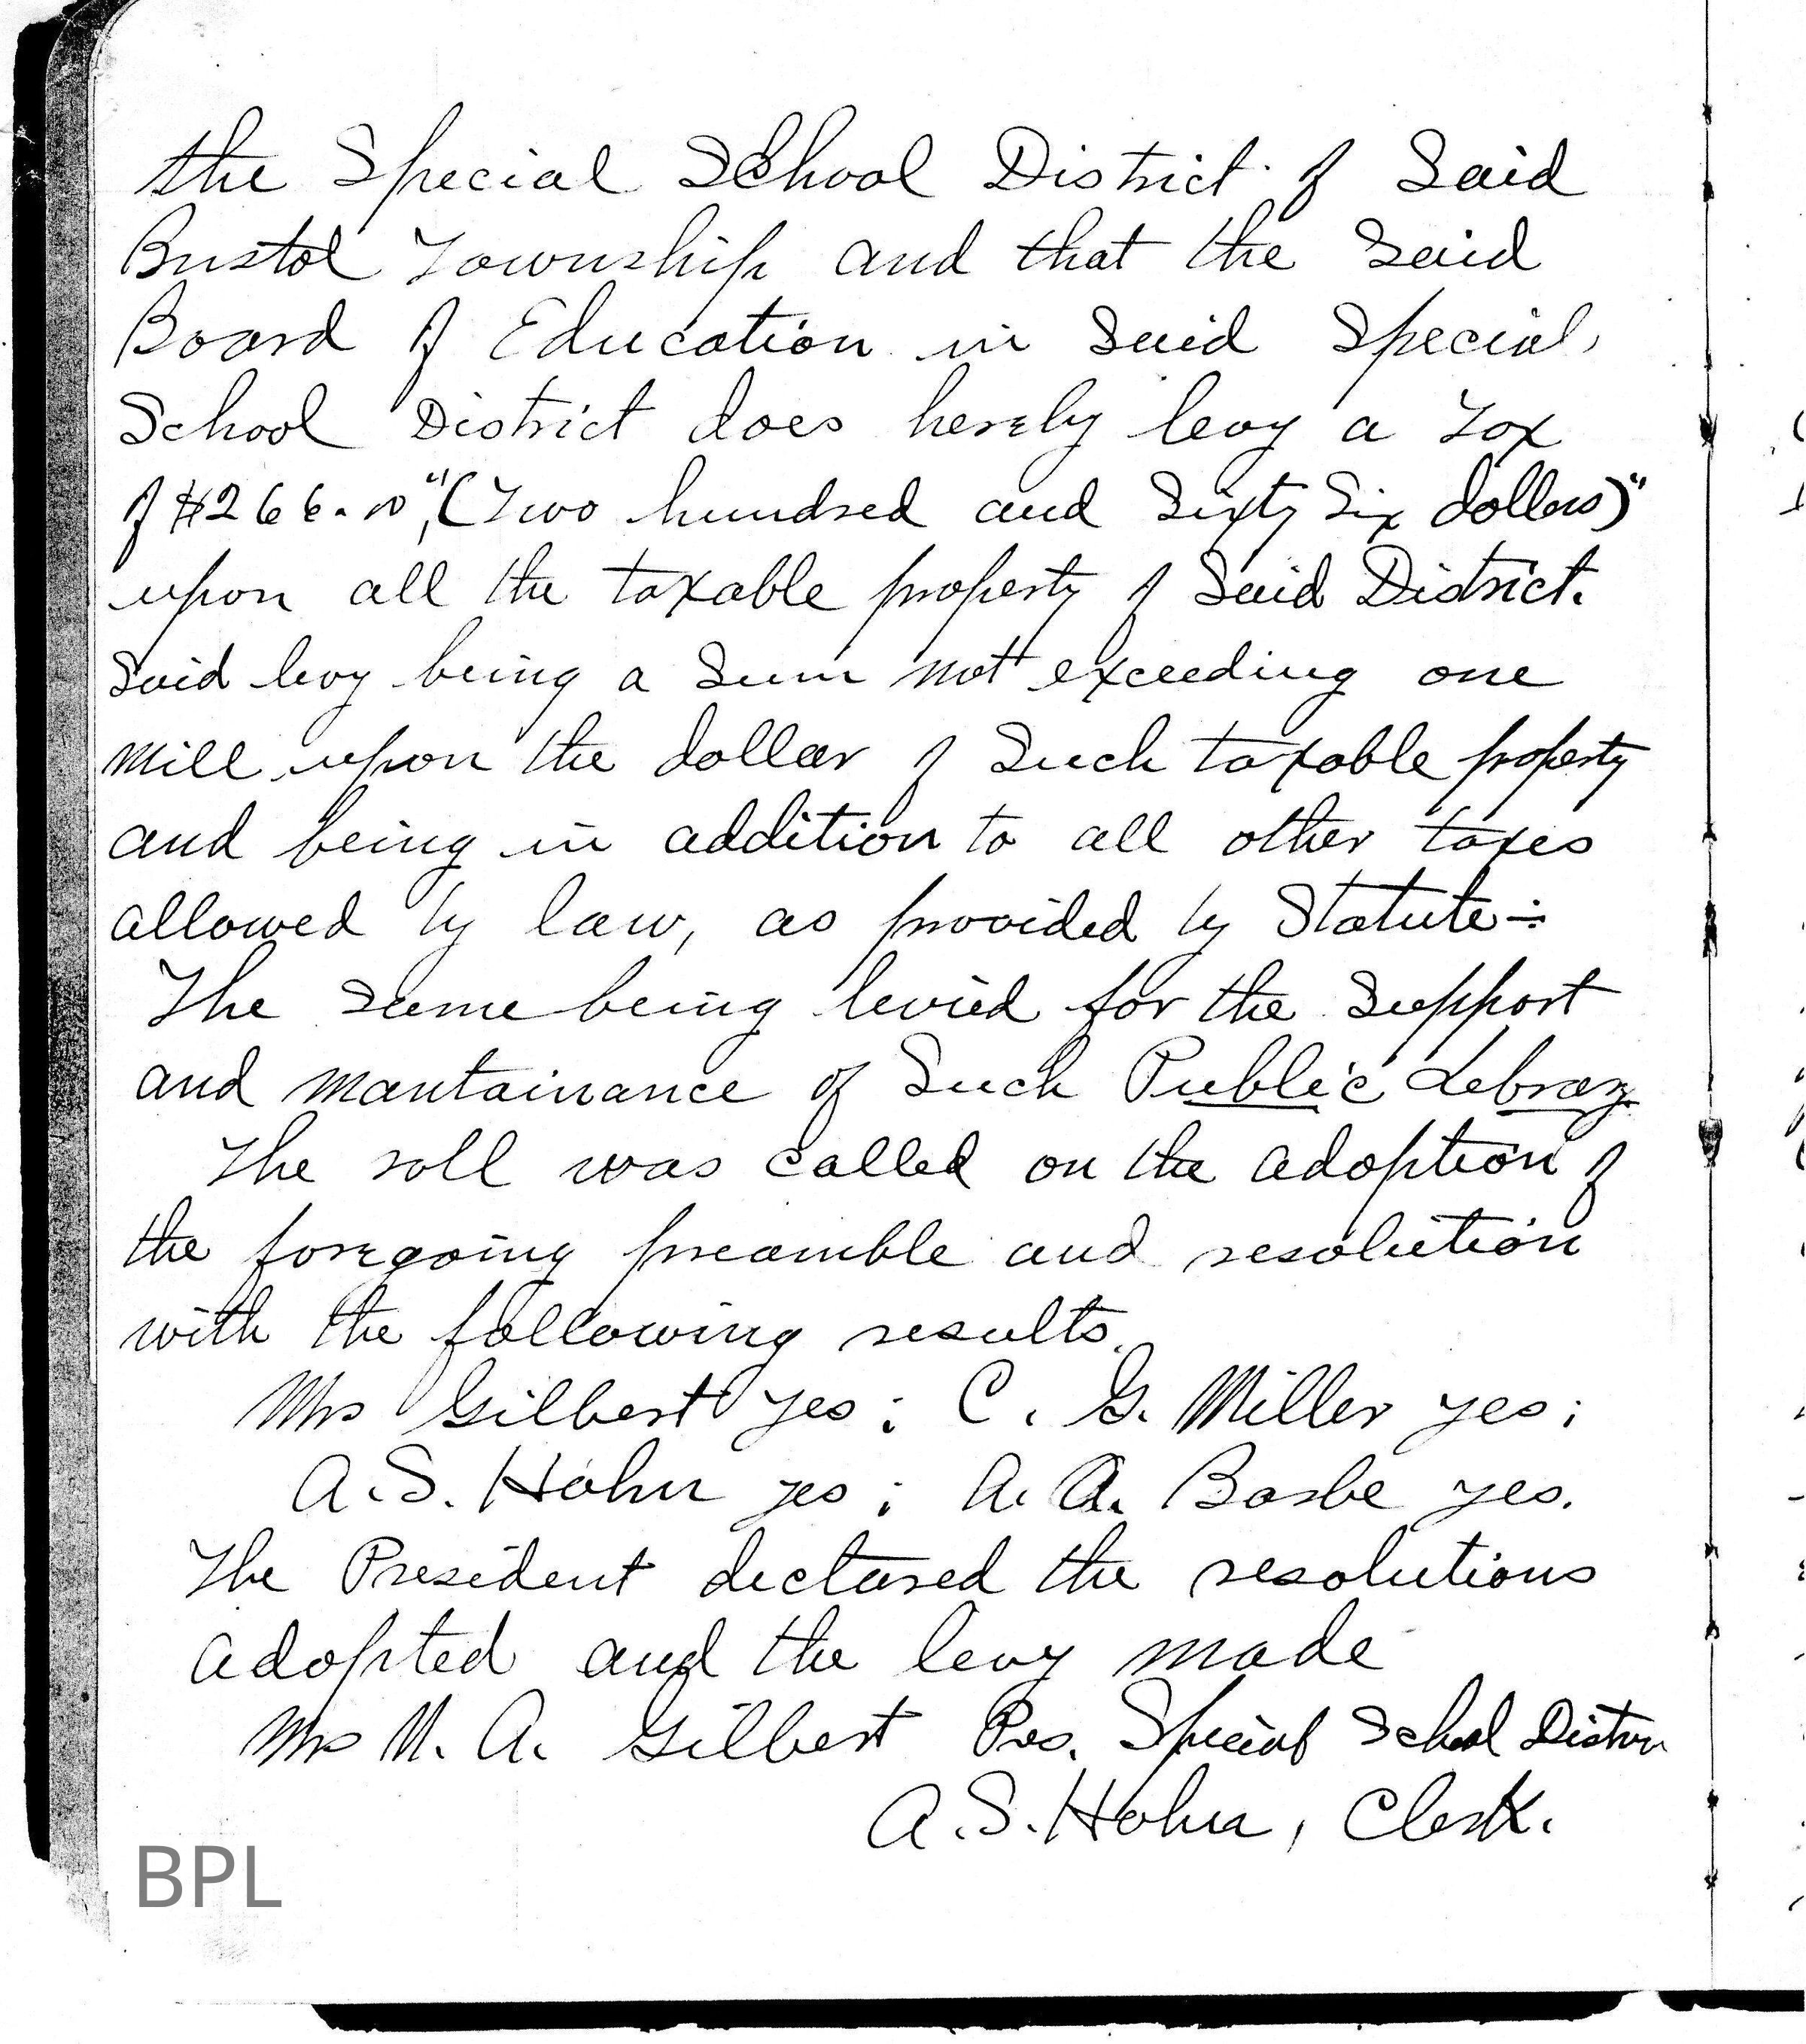 the Special School District of Said
Bristol Township and that the Said
Board of Education in Said Special,
School District does hereby levy a Tax
of $266.00", (Two hundred and Sixty Six dollars)"
upon all the taxable property of Said District.
Said levy being a Sum not exceeding one
Mill upon the dollar of Such taxable property
and being in addition to all other taxes
allowed by law, as provided by Statute ÷
The same being levied for the Support
and Mantainance of Such Public Lebrary
The roll was called on the adoption of
the foregoing preamble and resolution
with the following results.
Mrs Gilbert yes; C. G. Miller yes;
A. S. Hahn yes; A. A. Barbe yes.
The President declared the resolutions
adopted and the levy made
Mrs M. A. Gilbert Pres. Special School Distr
A. S. Hahn, Clerk.
BPL